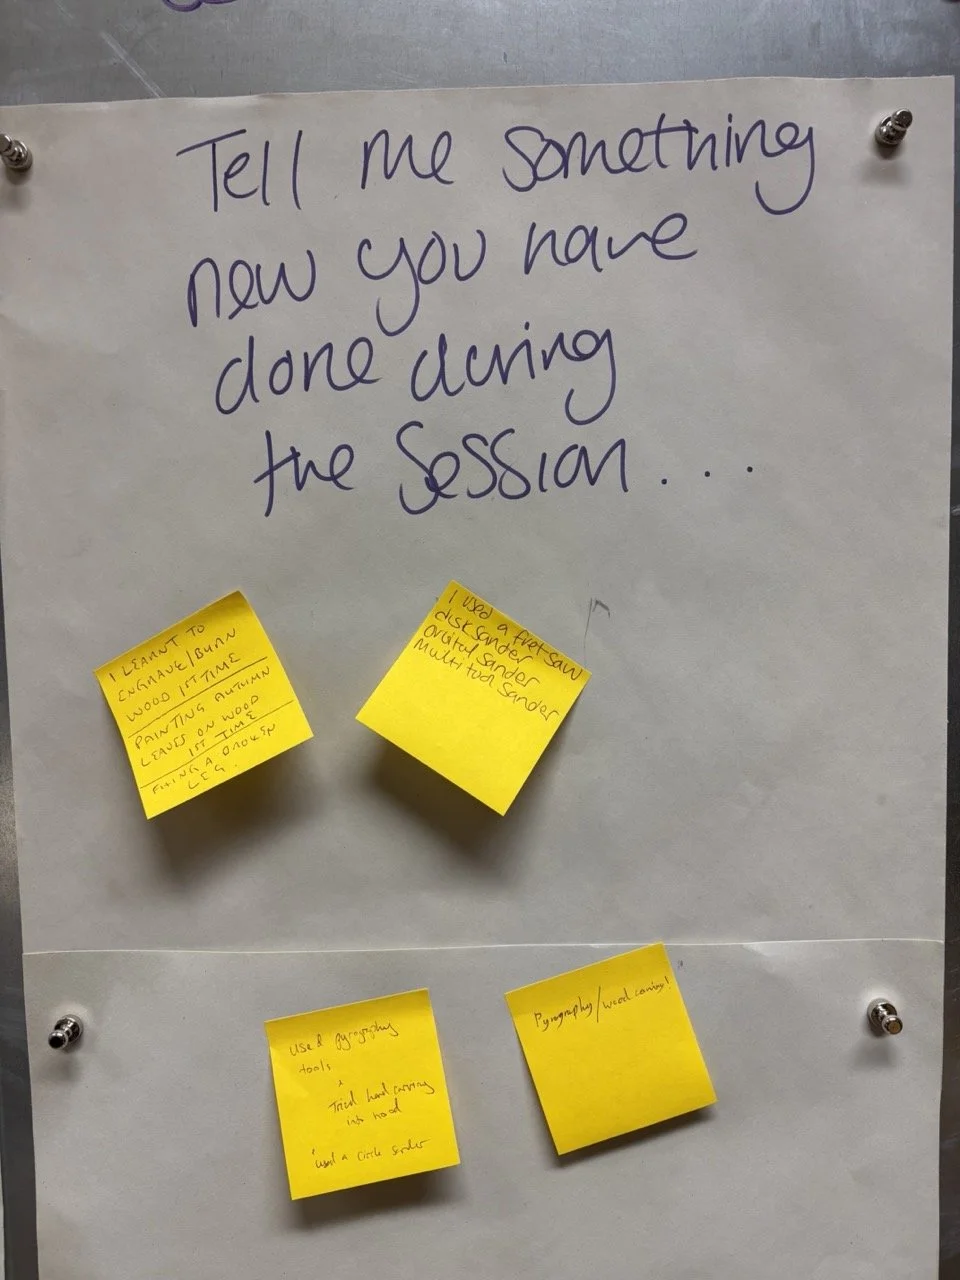 Tell me something
new you have
done during
the Session...
I LEARNT TO
ENGRAVE/BURN
WOOD 1ST TIME
PAINTING AUTUMN
LEAVES ON WOOD
1ST TIME
FIXING A BROKEN
LEG.
I used a fretsaw
disk sander
Orbital sander
Multitool sander
Used pyrography
tools
Tried hand carving
into wood
used a circle sander
Pyrography/wood carving!